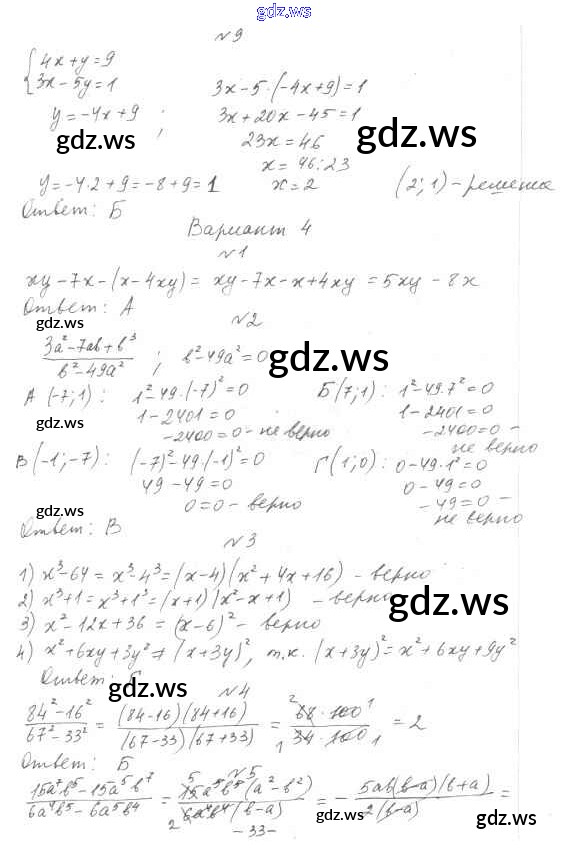 gdz.ws
№9
{4x+y=9
3x-5y=1
3x-5·(-4x+9)=1
y=-4x+9 ;
3x+20x-45=1
gdz.ws
gdz.ws
23x=46
x=46:23
y=-4·2+9=-8+9=1
x=2
(2;1)-решение
Ответ: Б
Вариант 4
№1
xy-7x-(x-4xy)= xy-7x-x+4xy =5xy-8x
Ответ: А
gdz.ws
№2
(3a²-7ab+b³)/(b²-49a²) ; b²-49a²=0
gdz.ws
А (-7;1): 1²-49·(-7)²=0
1-2401=0
-2400=0-не верно
Б(7;1): 1²-49·7²=0
1-2401=0
-2400=0-
не верно
gdz.ws
В(-1;-7): (-7)²-49·(-1)²=0
49-49=0
0=0-верно
Г(1;0): 0-49·1²=0
0-49=0
-49=0-
не верно
gdz.ws
Ответ: В
№3
1) x³-64=x³-4³=(x-4)(x²+4x+16) -верно
2) x³+1=x³+1³=(x+1)(x²-x+1) -верно
gdz.ws
3) x²-12x+36=(x-6)²-верно
4) x²+6xy+3y²≠(x+3y)², т.к. (x+3y)²=x²+6xy+9y²
Ответ: Г
gdz.ws
№4
(84²-16²)/(67²-33²) = (84-16)(84+16)/(67-33)(67+33) = ²68·100¹/₁34·100₁ = 2
Ответ: Б
gdz.ws
№5
(15a⁷b⁵-15a⁵b⁷)/(6a⁴b⁵-6a⁵b⁴) = ⁵15a⁵b⁵(a²-b²)/₂6a⁴b⁴(b-a) = -5ab(b-a)(b+a)/2(b-a) =
gdz.ws
gdz.ws
-33-